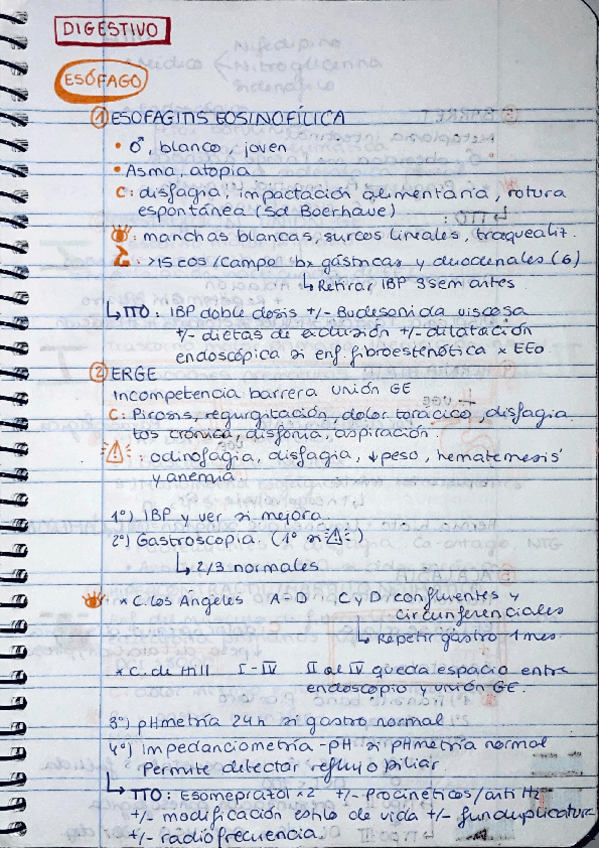 DIGESTIVO
ESÓFAGO
① ESOFAGITIS EOSINOFÍLICA
• ♂, blanco, joven
• Asma, atopia
C: disfagia, impactación alimentaria, rotura
espontánea (Sd Boerhave)
: manchas blancas, surcos lineales, traquealiz.
: >15 eos/campo bx gástricas y duodenales (6)
↳ Retirar IBP 3sem antes
↳ TTO: IBP doble dosis +/- Budesonida viscosa
+/- dietas de exclusión +/- dilatación
endoscópica si enf. fibroestenótica x EEo
② ERGE
Incompetencia barrera unión GE
C: Pirosis, regurgitación, dolor torácico, disfagia
tos crónica, disfonía, aspiración.
⚠: odinofagia, disfagia, ↓peso, hematemesis
y anemia
1º) IBP y ver si mejora
2º) Gastroscopia. (1º si ⚠)
↳ 2/3 normales
* C. los Ángeles A-D C y D confluentes y
circunferenciales
↳ Repetir gastro 1 mes.
* C. de Hill I-IV II al IV queda espacio entre
endoscopio y unión GE.
3º) pHmetría 24h si gastro normal
4º) Impedanciometría-pH si pHmetría normal
Permite detectar reflujo biliar
↳ TTO: Esomeprazol x2 +/- Procinéticos/anti H2
+/- modificación estilo de vida +/- funduplicatura
+/- radiofrecuencia.